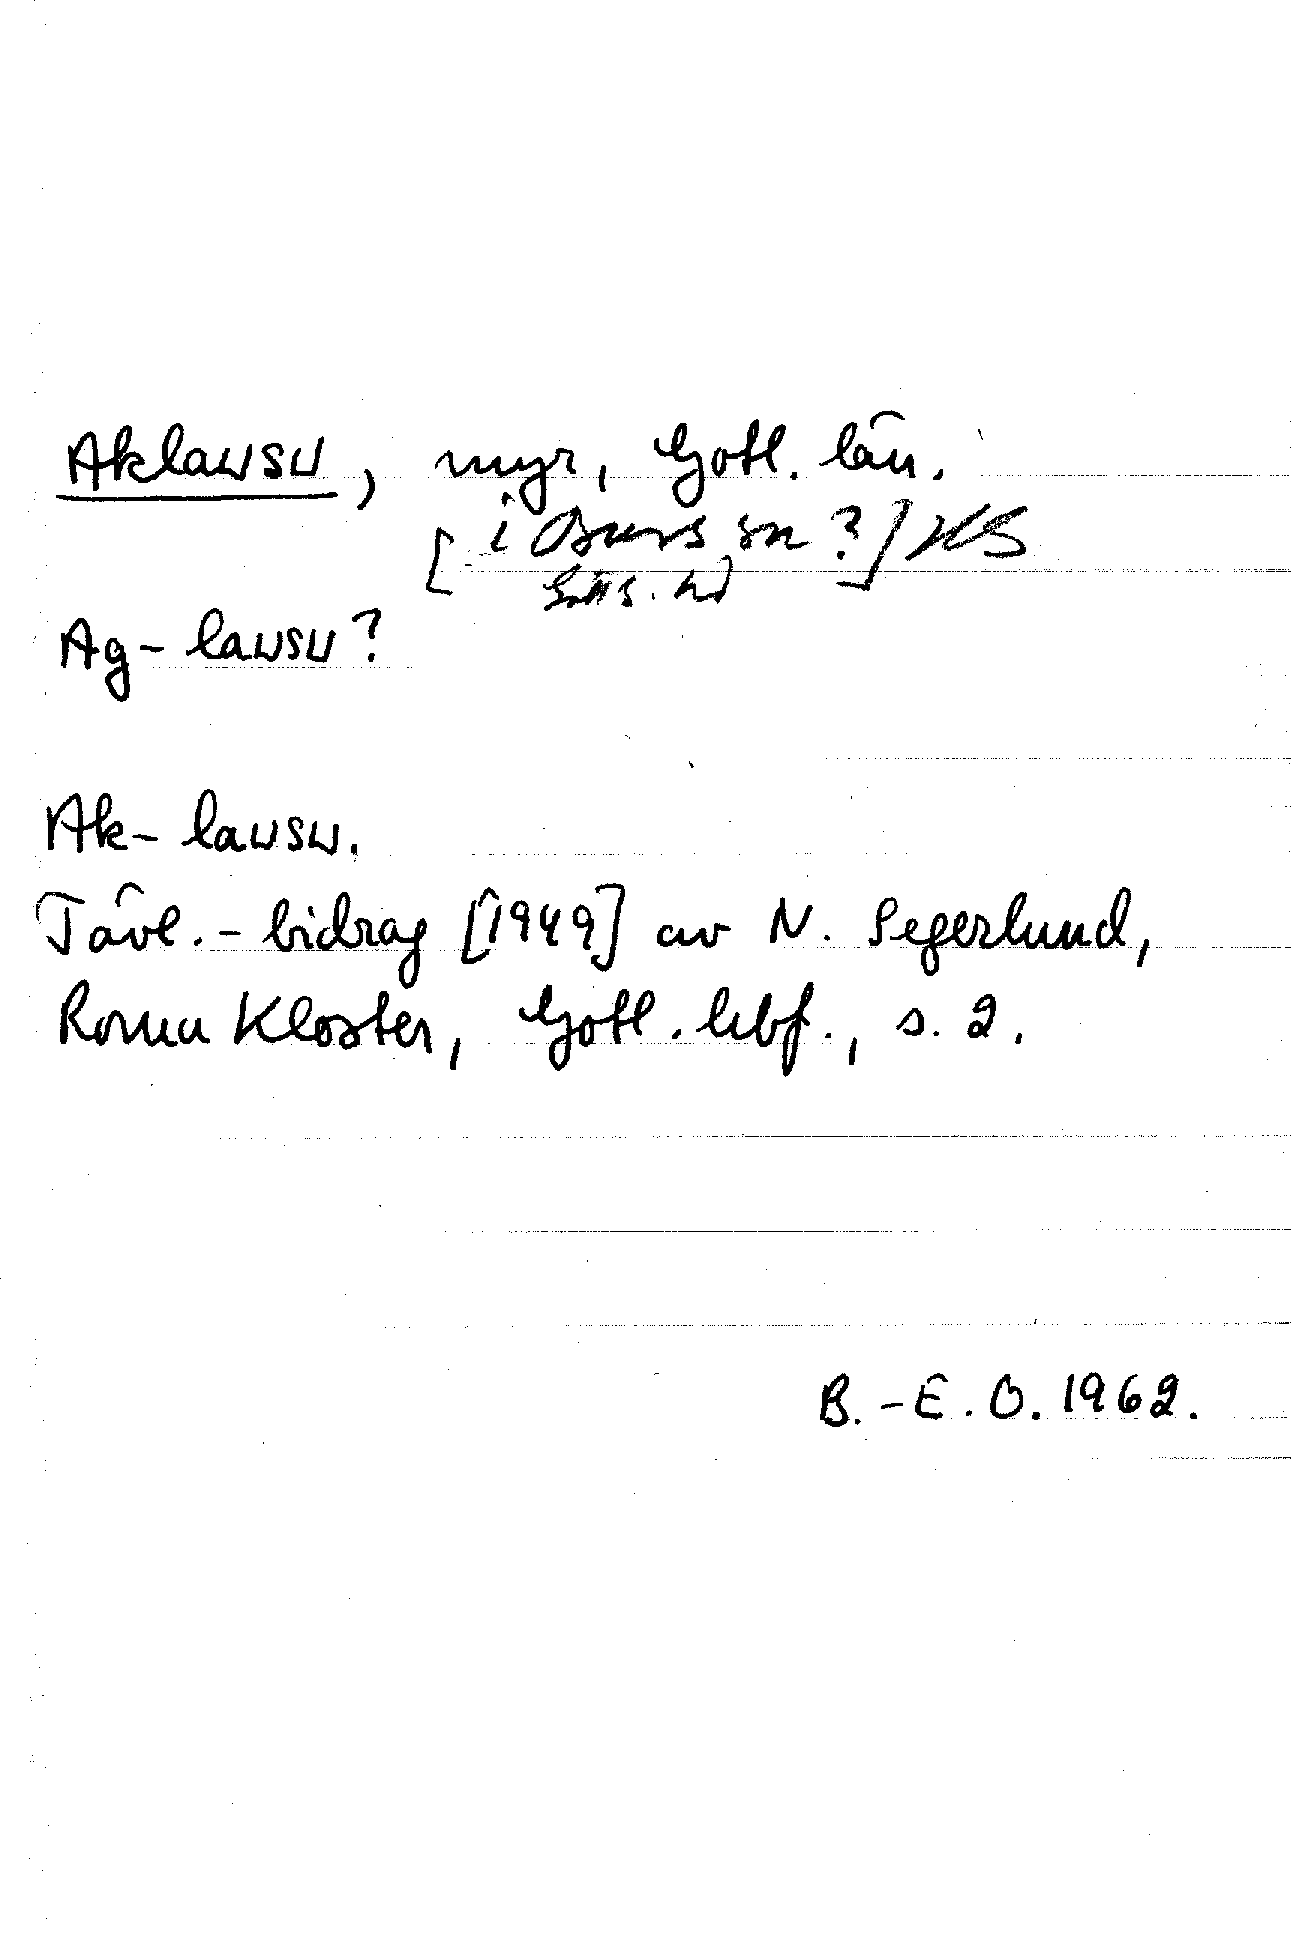 Aklausu, myr, Gotl. län.
[i Burs sn?]
Ag-lausu?
Ak-lausu.
Tävl.-bidrag [1949] av N. Segerlund,
Roma Kloster, Gotl. hbf., s. 2.
B.-E. O. 1962.